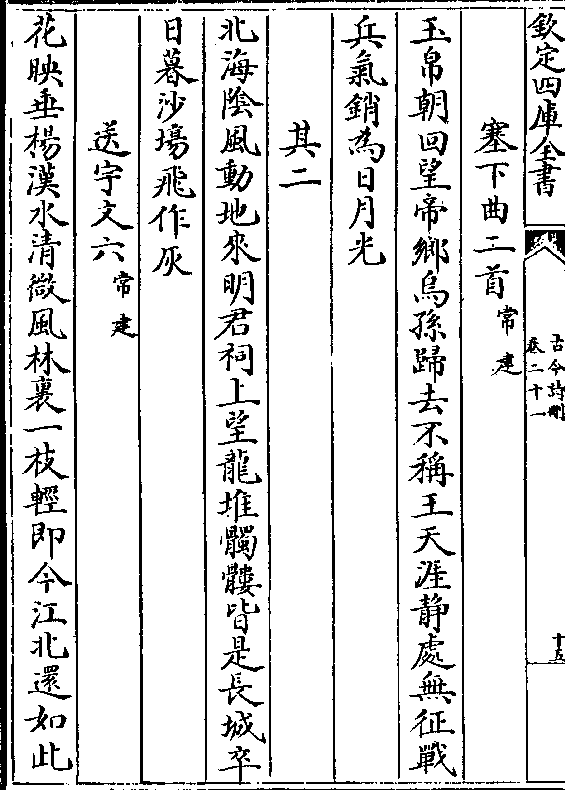 欽定四庫全書
古今詩刪
卷二十一
十五
塞下曲二首常建
玉帛朝回望帝鄉烏孫歸去不稱王天涯静處無征戰
兵氣銷為日月光
其二
北海陰風動地來明君祠上望龍堆髑髏皆是長城卒
日暮沙場飛作灰
送宇文六常建
花映垂楊漢水清微風林裏一枝輕即今江北還如此